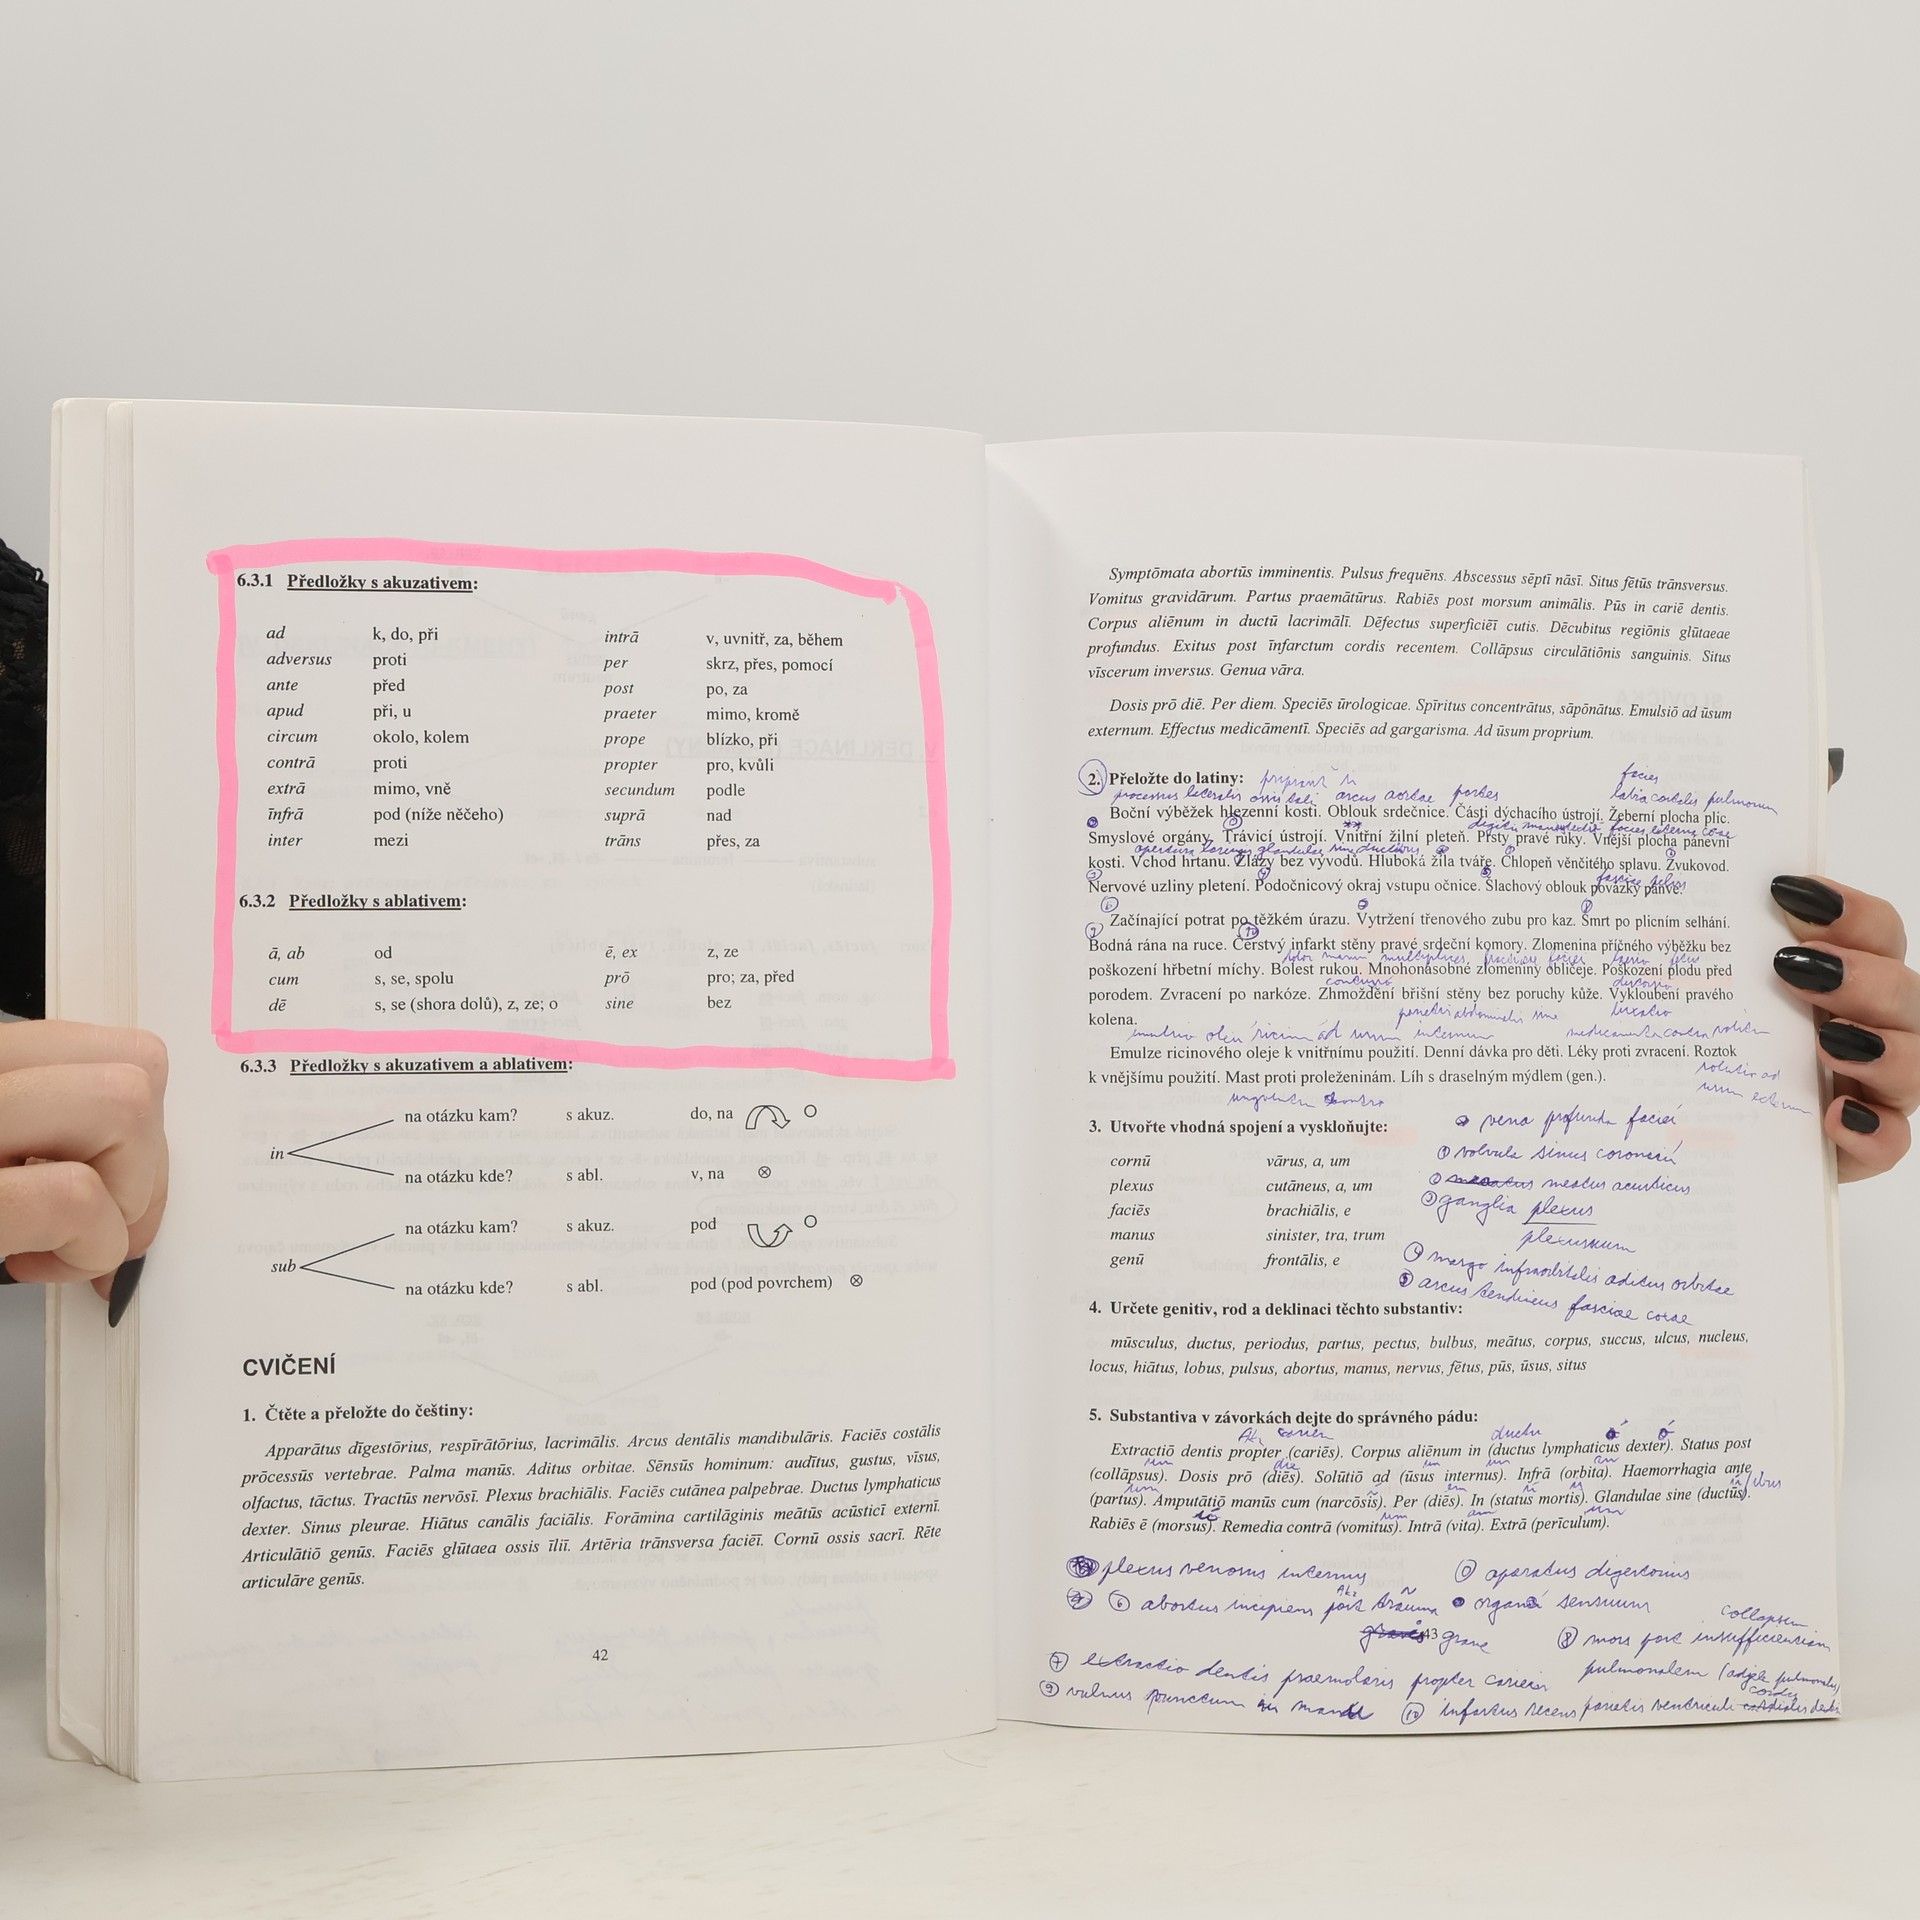 6.3.1 Předložky s akuzativem:
ad k, do, při intrā v, uvnitř, za, během
adversus proti per skrz, přes, pomocí
ante před post po, za
apud při, u praeter mimo, kromě
circum okolo, kolem prope blízko, při
contrā proti propter pro, kvůli
extrā mimo, vně secundum podle
īnfrā pod (níže něčeho) suprā nad
inter mezi trāns přes, za
6.3.2 Předložky s ablativem:
ā, ab od ē, ex z, ze
cum s, se, spolu prō pro; za, před
dē s, se (shora dolů), z, ze; o sine bez
6.3.3 Předložky s akuzativem a ablativem:
na otázku kam? s akuz. do, na
in
na otázku kde? s abl. v, na
na otázku kam? s akuz. pod
sub
na otázku kde? s abl. pod (pod povrchem)
CVIČENÍ
1. Čtěte a přeložte do češtiny:
Apparātus dīgestōrius, respīrātōrius, lacrimālis. Arcus dentālis mandibulāris. Faciēs costālis
prōcessūs vertebrae. Palma manūs. Aditus orbitae. Sēnsūs hominum: audītus, gustus, vīsus,
olfactus, tāctus. Tractūs nervōsī. Plexus brachiālis. Faciēs cutānea palpebrae. Ductus lymphaticus
dexter. Sinus pleurae. Hiātus canālis faciālis. Forāmina cartilāginis meātūs acūsticī externī.
Articulātiō genūs. Faciēs glūtaea ossis īliī. Artēria trānsversa faciēī. Cornū ossis sacrī. Rēte
articulāre genūs.
42
Symptōmata abortūs imminentis. Pulsus frequēns. Abscessus sēptī nāsī. Situs fētūs trānsversus.
Vomitus gravidārum. Partus praemātūrus. Rabiēs post morsum animālis. Pūs in cariē dentis.
Corpus aliēnum in ductū lacrimālī. Dēfectus superficiēī cutis. Dēcubitus regiōnis glūtaeae
profundus. Exitus post īnfarctum cordis recentem. Collāpsus circulātiōnis sanguinis. Situs
vīscerum inversus. Genua vāra.
Dosis prō diē. Per diem. Speciēs ūrologicae. Spīritus concentrātus, sāpōnātus. Emulsiō ad ūsum
externum. Effectus medicāmentī. Speciēs ad gargarisma. Ad ūsum proprium.
2. Přeložte do latiny:
facies
processus lateralis ossis tali arcus aortae partes
Boční výběžek hlezenní kosti. Oblouk srdečnice. Části dýchacího ústrojí. Žeberní plocha plic.
Smyslové orgány. Trávicí ústrojí. Vnitřní žilní pleteň. Prsty pravé ruky. Vnější plocha pánevní
kosti. Vchod hrtanu. Žlázy bez vývodů. Hluboká žíla tváře. Chlopeň věnčitého splavu. Zvukovod.
Nervové uzliny pletení. Podočnicový okraj vstupu očnice. Šlachový oblouk povázky pánve.
Začínající potrat po těžkém úrazu. Vytržení třenového zubu pro kaz. Smrt po plicním selhání.
Bodná rána na ruce. Čerstvý infarkt stěny pravé srdeční komory. Zlomenina příčného výběžku bez
poškození hřbetní míchy. Bolest rukou. Mnohonásobné zlomeniny obličeje. Poškození plodu před
porodem. Zvracení po narkóze. Zhmoždění břišní stěny bez poruchy kůže. Vykloubení pravého
kolena.
Emulze ricinového oleje k vnitřnímu použití. Denní dávka pro děti. Léky proti zvracení. Roztok
k vnějšímu použití. Mast proti proleženinám. Líh s draselným mýdlem (gen.).
3. Utvořte vhodná spojení a vyskloňujte:
cornū vārus, a, um
plexus cutāneus, a, um
faciēs brachiālis, e
manus sinister, tra, trum
genū frontālis, e
vena profunda faciei
meatus acusticus
ganglia plexus
4. Určete genitiv, rod a deklinaci těchto substantiv:
mūsculus, ductus, periodus, partus, pectus, bulbus, meātus, corpus, succus, ulcus, nucleus,
locus, hiātus, lobus, pulsus, abortus, manus, nervus, fētus, pūs, ūsus, situs
5. Substantiva v závorkách dejte do správného pádu:
Extractiō dentis propter (cariēs). Corpus aliēnum in (ductus lymphaticus dexter). Status post
(collāpsus). Dosis prō (diēs). Solūtiō ad (ūsus internus). Infrā (orbita). Haemorrhagia ante
(partus). Amputātiō manūs cum (narcōsis). Per (diēs). In (status mortis). Glandulae sine (ductūs).
Rabiēs ē (morsus). Remedia contrā (vomitus). Intrā (vita). Extrā (perīculum).
plexus venosus internus
abortus incipiens post trauma
grave
43
mors post insufficienciam
extractio dentis praemolaris propter cariem